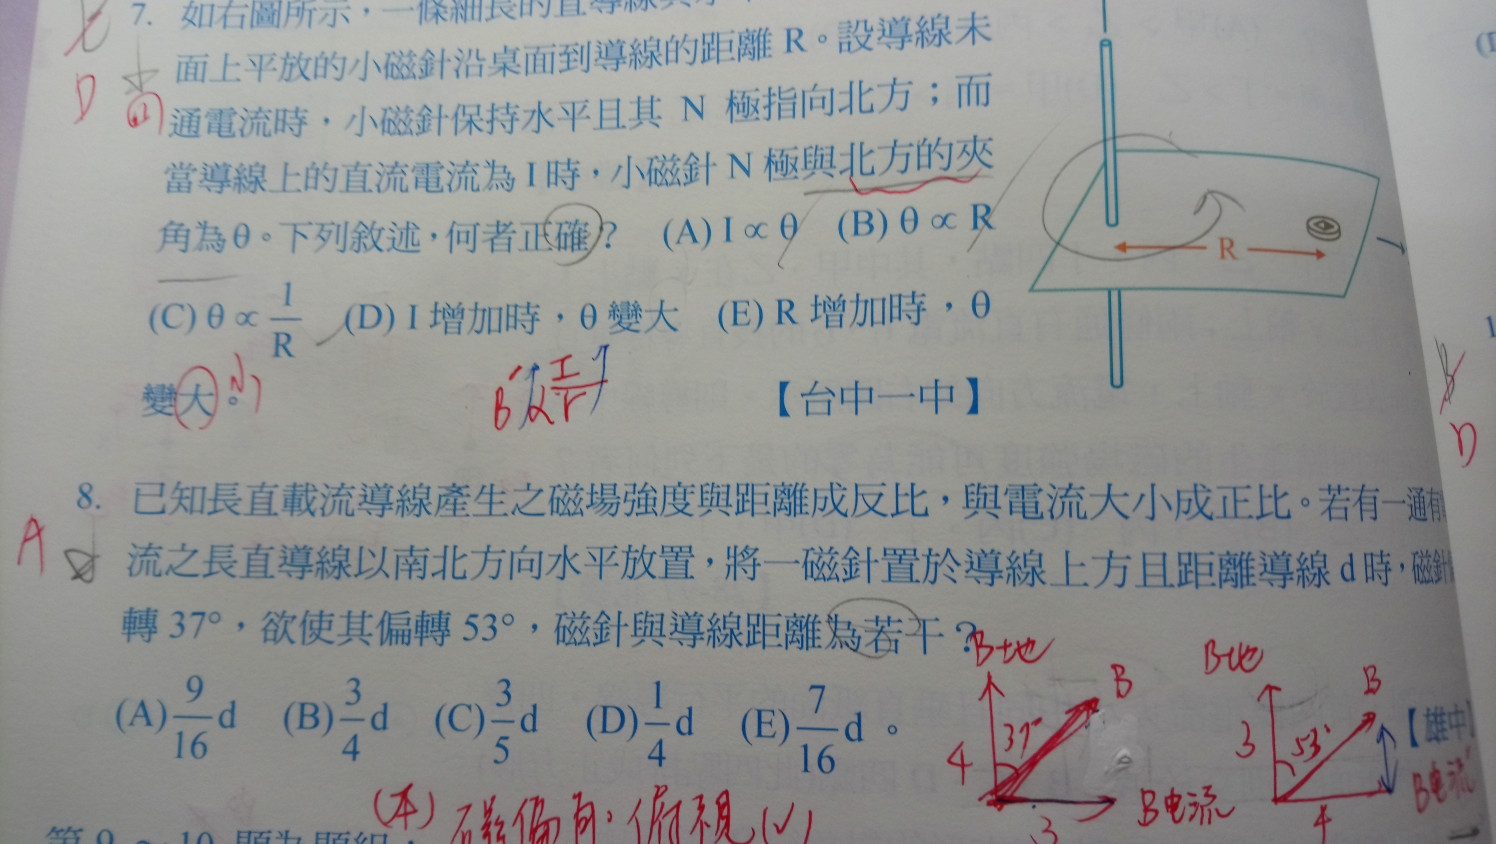 7. 如右圖所示，一條細長的直導線與水
面上平放的小磁針沿桌面到導線的距離 R。設導線未
通電流時，小磁針保持水平且其 N 極指向北方；而
當導線上的直流電流為 I 時，小磁針 N 極與北方的夾
角為 θ。下列敘述，何者正確？ (A) I ∝ θ (B) θ ∝ R
(C) θ ∝ 1/R (D) I 增加時，θ 變大 (E) R 增加時，θ
變大。 【台中一中】
R
D
B ∝ I/r
8. 已知長直載流導線產生之磁場強度與距離成反比，與電流大小成正比。若有一通有
流之長直導線以南北方向水平放置，將一磁針置於導線上方且距離導線 d 時，磁針
轉 37°，欲使其偏轉 53°，磁針與導線距離為若干？
(A) 9/16 d (B) 3/4 d (C) 3/5 d (D) 1/4 d (E) 7/16 d。
【雄中】
A
B地 B 37° 4 3 B电流
B地 B 53° 3 4 B电流
(本) 磁偏角：俯視(√)
D